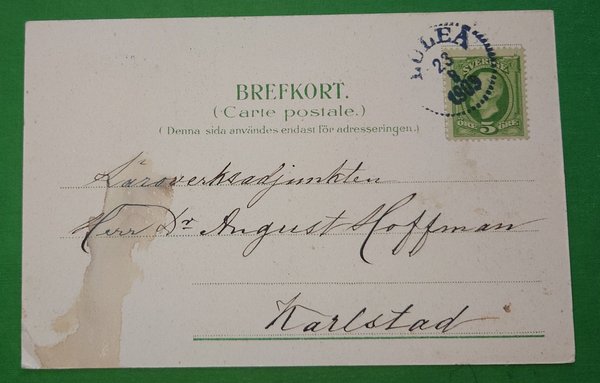 LULEÅ
23
8
1905
SVERIGE
5
ÖRE ÖRE
BREFKORT.
(Carte postale.)
(Denna sida användes endast för adresseringen.)
Läroverksadjunkten
Herr Dr August Hoffman
Karlstad